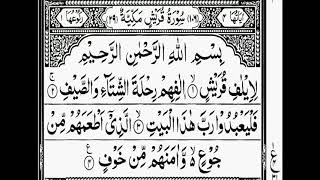 سُوْرَةُ قُرَيْشٍ مَكِّيَّةٌ
بِسْمِ اللهِ الرَّحْمٰنِ الرَّحِيْمِ
لِاِيْلٰفِ قُرَيْشٍ ۙ﴿١﴾ اٖلٰفِهِمْ رِحْلَةَ الشِّتَآءِ وَالصَّيْفِ ۚ﴿٢﴾
فَلْيَعْبُدُوْا رَبَّ هٰذَا الْبَيْتِ ۙ﴿٣﴾ الَّذِيْٓ اَطْعَمَهُمْ مِّنْ
جُوْعٍ ۙ۬ وَّاٰمَنَهُمْ مِّنْ خَوْفٍ ﴿٤﴾